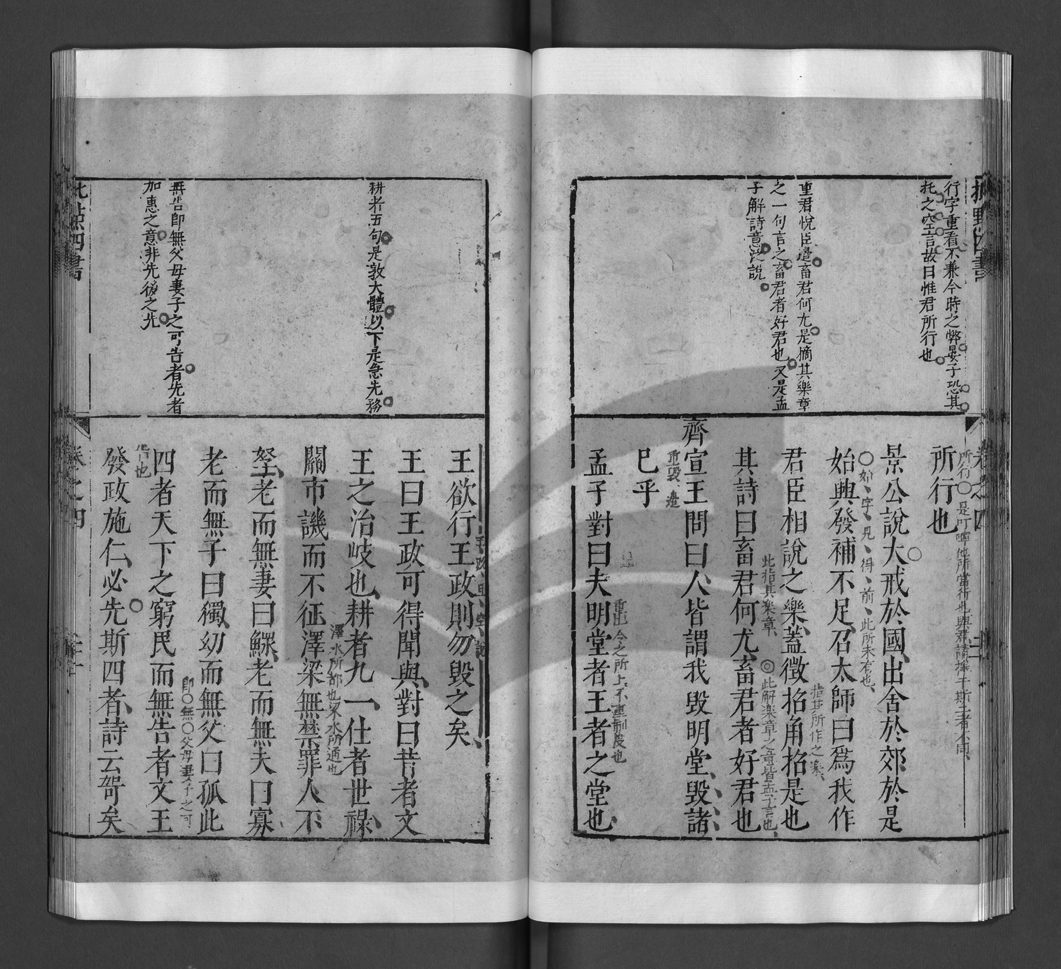 行字重看不兼今時之弊晏子恐其
托之空言故曰惟君所行也
重君悅臣邉畜君何尤是摘其樂章
之一句言之畜君者好君也又是孟
子解詩意說
所行也
景公說大戒於國出舍於郊於是
始興發補不足召太師曰爲我作
君臣相說之樂蓋徵招角招是也
此指其楽章
其詩曰畜君何尤畜君者好君也
齊宣王問曰人皆謂我毀明堂毀諸
已乎
孟子對曰夫明堂者王者之堂也
耕者五句是敦大體以下是急先務
無告即無父母妻子之可告者先者
加惠之意非先後之先
王欲行王政則勿毀之矣
王曰王政可得聞與對曰昔者文
王之治岐也耕者九一仕者世祿
關市譏而不征澤梁無禁罪人不
孥老而無妻曰鰥老而無夫曰寡
老而無子曰獨幼而無父曰孤此
即無父母妻子之可
四者天下之窮民而無告者文王
告也
發政施仁必先斯四者詩云哿矣
卷之四